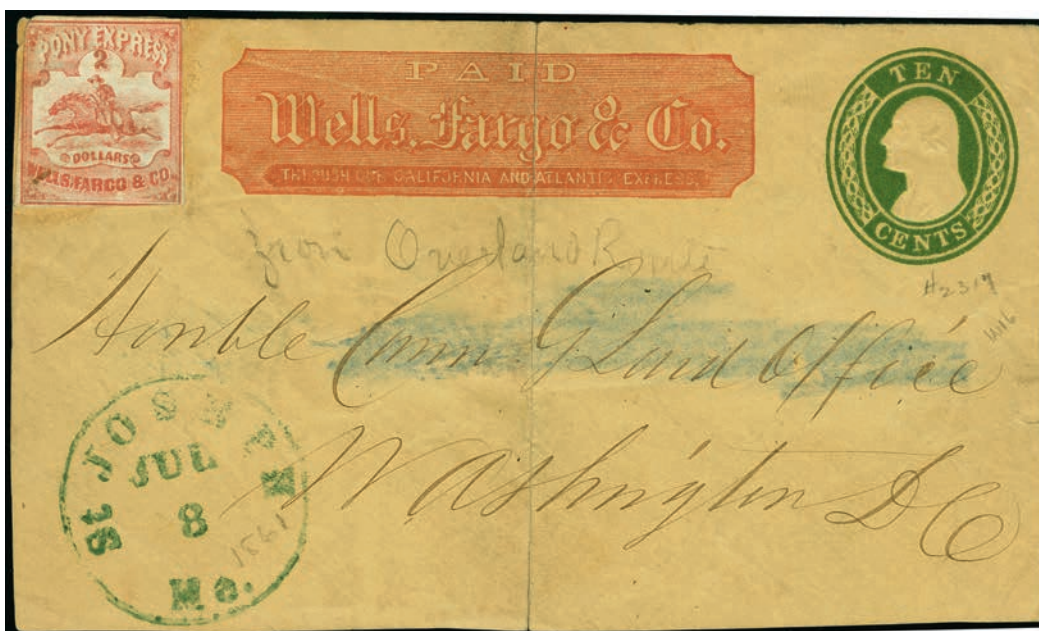 PONY EXPRESS
2
DOLLARS
WELLS, FARGO & CO.
PAID
Wells, Fargo & Co.
THROUGH OUR CALIFORNIA AND ATLANTIC EXPRESS.
TEN
CENTS
from Overland Route
H2317
Honble Comm G Land Office
Washington DC
St JOSEPH
JUL
8
1861
Mo.